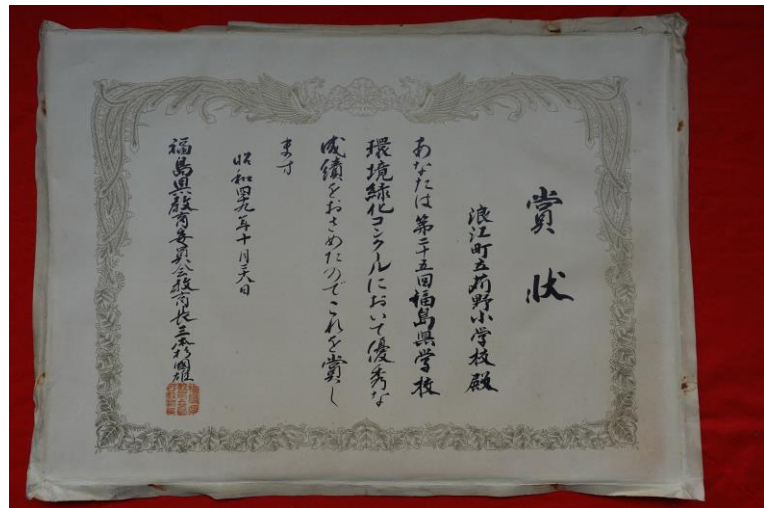 賞状
浪江町立苅野小学校殿
あなたは第二十五回福島県学校
環境緑化コンクールにおいて優秀な
成績をおさめたのでこれを賞し
ます
昭和四十九年十月二十八日
福島県教育委員会教育長三本杉國雄